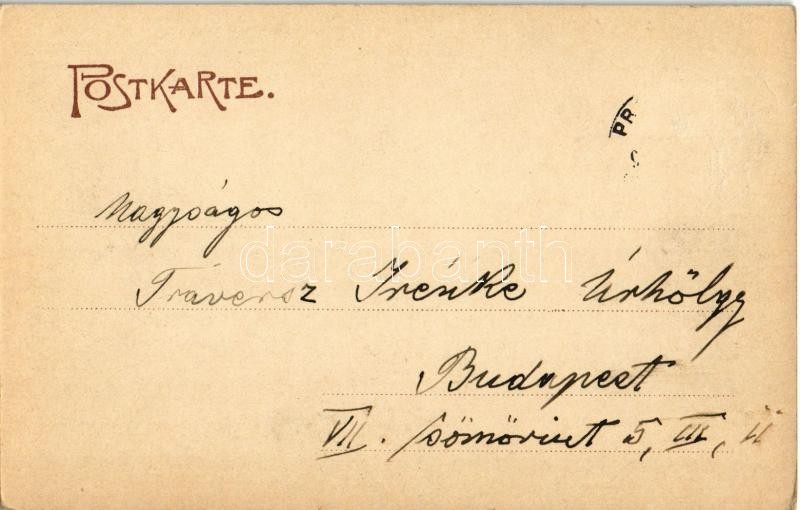 POSTKARTE.
PR
Nagyságos
Tráversz Irénke Úrhölgy
darabanth
Budapest
VII. Csömöriut 5, III, ii